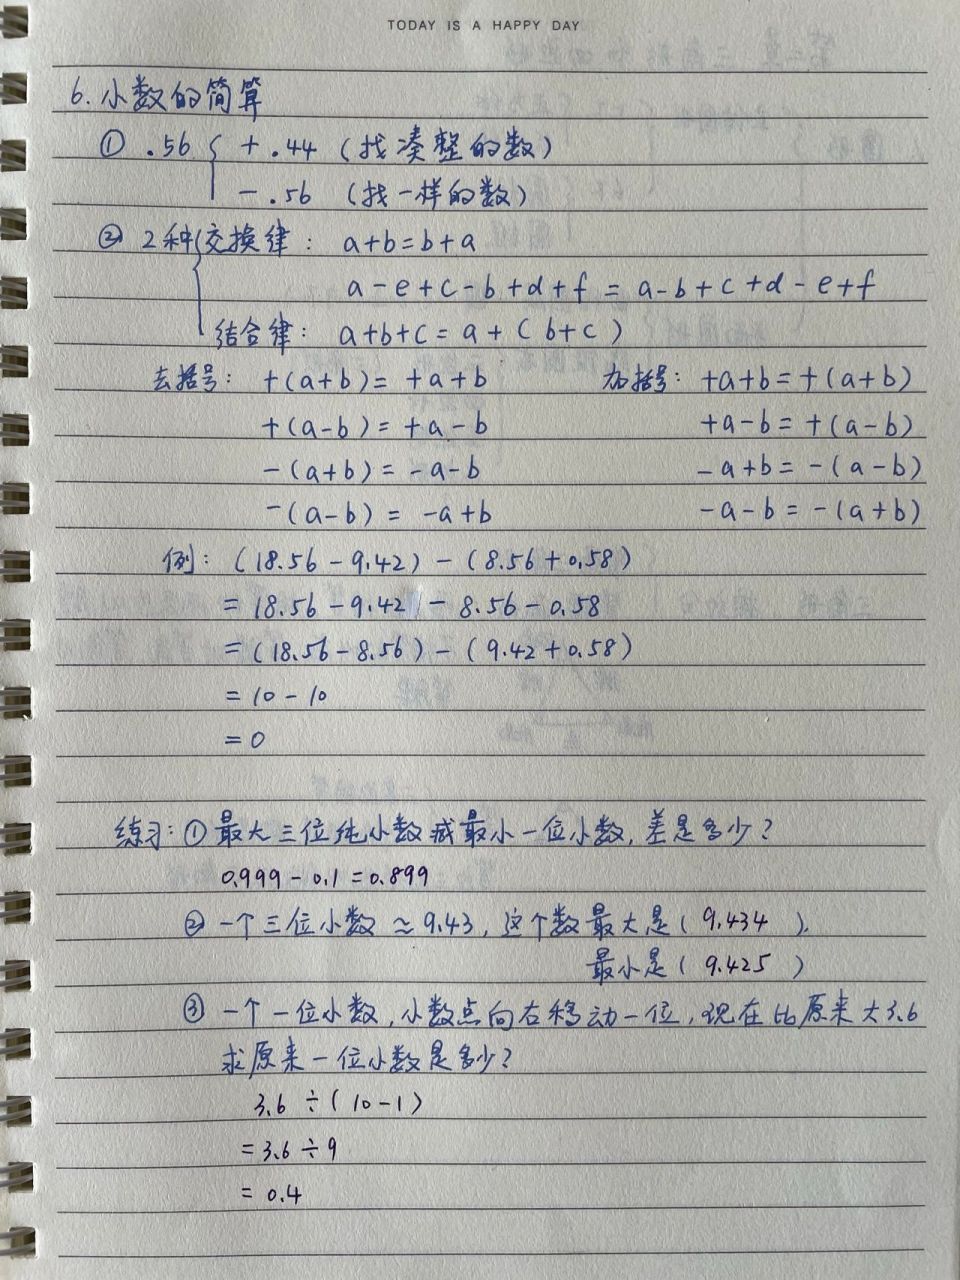 TODAY IS A HAPPY DAY
6. 小数的简算
① .56 { + .44 (找凑整的数)
- .56 (找一样的数)
② 2种 { 交换律: a+b=b+a
a-e+c-b+d+f = a-b+c+d-e+f
结合律: a+b+c = a+(b+c)
去括号: +(a+b)= +a+b 加括号: +a+b=+(a+b)
+(a-b)= +a-b +a-b= +(a-b)
-(a+b)= -a-b -a+b= -(a-b)
-(a-b)= -a+b -a-b = -(a+b)
例: (18.56-9.42)-(8.56+0.58)
= 18.56-9.42-8.56-0.58
= (18.56-8.56)-(9.42+0.58)
= 10-10
= 0
练习: ① 最大三位纯小数减最小一位小数, 差是多少?
0.999-0.1=0.899
② 一个三位小数≈9.43, 这个数最大是( 9.434 ).
最小是( 9.425 )
③ 一个一位小数, 小数点向右移动一位, 现在比原来大3.6
求原来一位小数是多少?
3.6÷(10-1)
= 3.6÷9
= 0.4